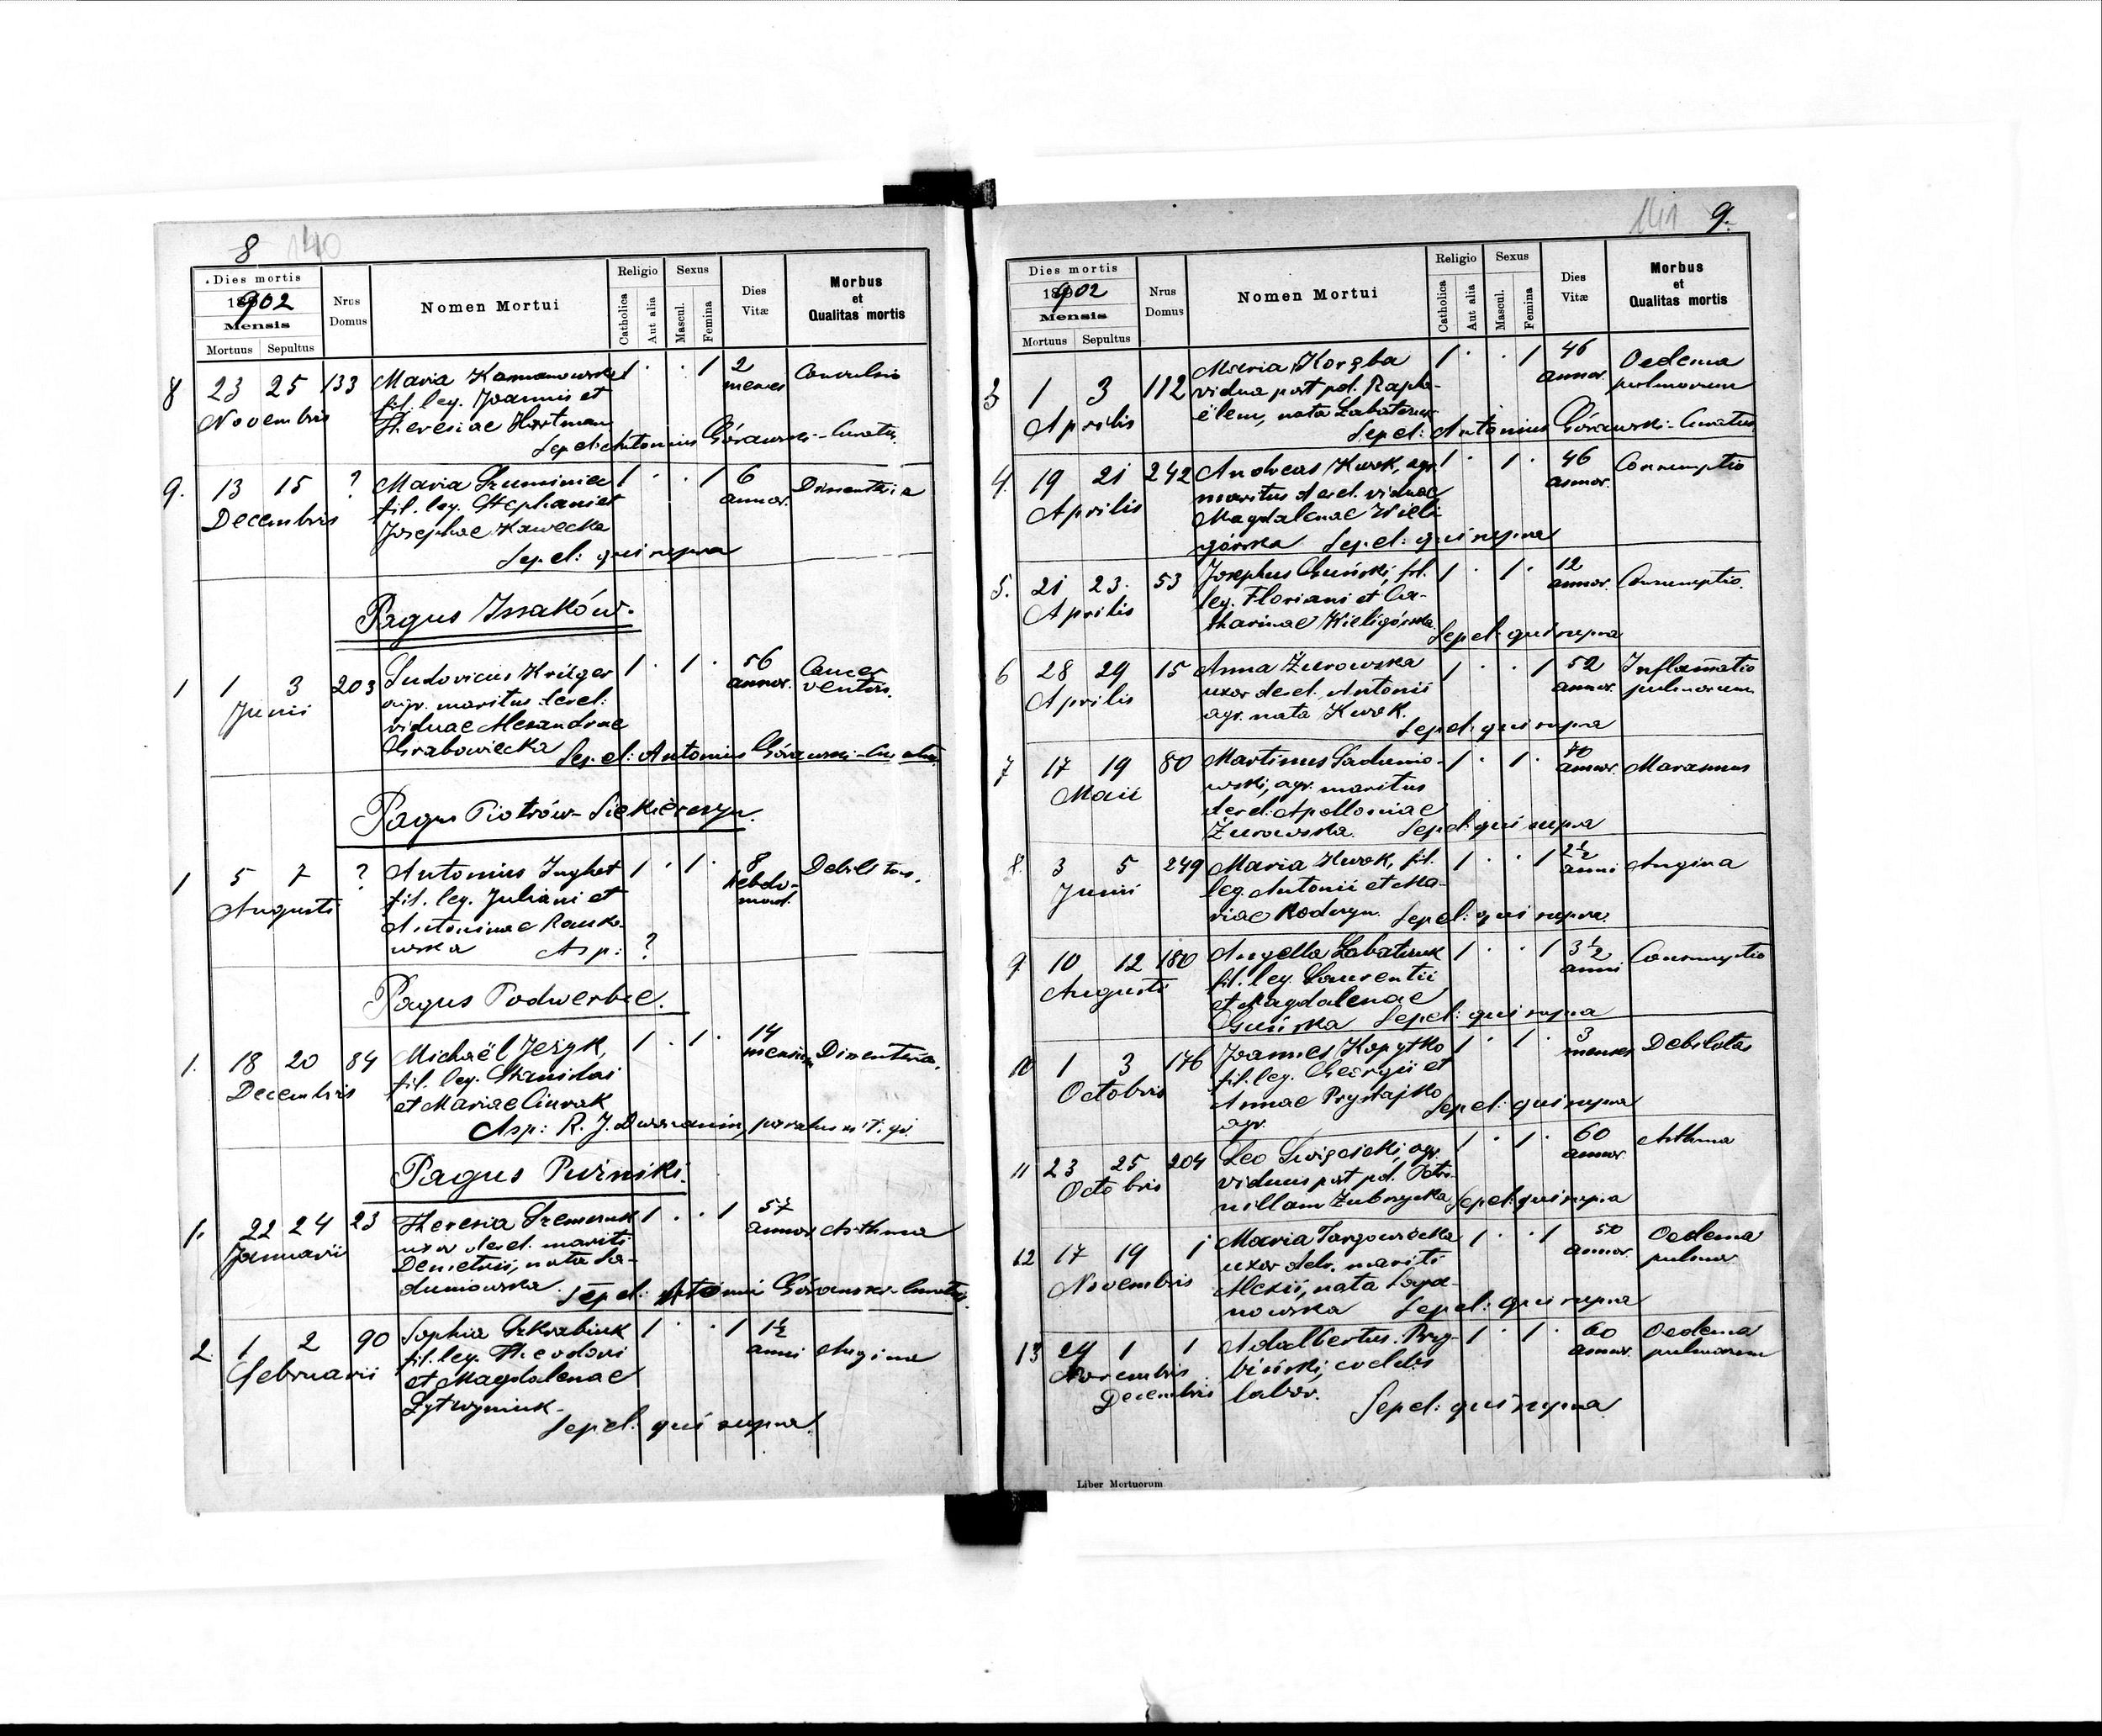 8 140
Dies mortis
1902
Mensis
Mortuus Sepultus
Nrus Domus
Nomen Mortui
Religio
Catholica
Aut alia
Sexus
Mascul.
Femina
Dies Vitæ
Morbus et Qualitas mortis
8 23 25 133 Maria 1 · · 1 2 menses Convulsio
Novembris fil. leg. Joannis et
Theresiae Hartman
Sepel: Antonius Górawski-Curatus
9. 13 15 ? Maria 1 · · 1 6 annor. Dissenteria
Decembris fil. leg. Stephani et
Josephae Kawecka
Sepel: qui supra
Pagus Issaków.
1 1 3 203 Ludovicus Krüger 1 · 1 · 56 annor. Cancer ventris.
Junii agr. maritus derel:
viduae Alexandrae
Grabowiecka Sepel: Antonius Górawski-Curatus
Pagus Piotrów-Siekierczyn.
1 5 7 ? Antonius 1 · 1 · 8 hebdomad. Debilitas.
Augusti fil. leg. Juliani et
Antoninae Ranko-
wska Asp: ?
Pagus Podwerbce.
1. 18 20 84 Michaël Jeżyk, 1 · 1 · 14 mensium Dissenteria.
Decembris fil. leg. Stanislai
et Mariae Ciurak
Asp: R. J.
Pagus Puźniki.
1. 22 24 23 Theresia 1 · · 1 57 annor Asthma
Januarii uxor derel. mariti
Demetrii, nata Sa-
duniowska Sepel: Antonius Górawski-Curatus
2 1 2 90 Sophia Szkrabiuk 1 · · 1 1½ anni Angina
Februarii fil. leg. Theodori
et Magdalenae
Łytwyniuk.
Sepel: qui supra
141 9.
Dies mortis
1902
Mensis
Mortuus Sepultus
Nrus Domus
Nomen Mortui
Religio
Catholica
Aut alia
Sexus
Mascul.
Femina
Dies Vitæ
Morbus et Qualitas mortis
3 1 3 112 Maria Korżba 1 · · 1 46 annor. Oedema pulmonum
Aprilis vidua post pd. Rapha-
ëlem, nata Łabatiuk
Sepel: Antonius Górawski-Curatus
4. 19 21 242 Andreas Kurok, agr. 1 · 1 · 46 annor. Consumptio
Aprilis maritus derel. viduae
Magdalenae Wieli-
górska Sepel: qui supra
5. 21 23. 53 Josephus Guński, fil. 1 · 1 · 12 annor. Consumptio.
Aprilis leg. Floriani et Ca-
tharinae Wieligórska
Sepel: qui supra
6 28 29 15 Anna Żurowska 1 · · 1 52 annor. Inflam̄atio pulmonum
Aprilis uxor derel. Antonii
agr. nata Kurok.
Sepel: qui supra
7 17 19 80 Martinus Sadunio- 1 · 1 · 70 annor. Marasmus
Maii wski, agr. maritus
derel: Apolloniae
Żurowska. Sepel: qui supra
8. 3 5 249 Maria Kurok, fil. 1 · · 1 2½ anni Angina
Junii leg. Antonii et Ma-
riae Sepel: qui supra.
9 10 12 180 Angella Łabatiuk 1 · · 1 3½ anni Consumptio
Augusti fil. leg. Laurentii
et Magdalenae
Guńska Sepel: qui supra
10 1 3 176 Joannes Kopytko 1 · 1 · 3 menses Debilitas
Octobris fil. leg. Georgii et
Annae Prystajko
agr. Sepel: qui supra
11 23 25 204 Leo agr. 1 · 1 · 60 annor. Asthma
Octobris viduus post pd. Petro-
nillam Zubrycka Sepel: qui supra
12 17 19 1 Maria 1 · · 1 50 annor. Oedema pulmon.
Novembris uxor der. mariti
Alexii, nata
Sepel: qui supra
13 29 1 1 Adalbertus Pry- 1 · 1 · 60 annor. Oedema pulmonum
Novembris bińśki, coelebs
Decembris labor. Sepel: qui supra
Liber Mortuorum